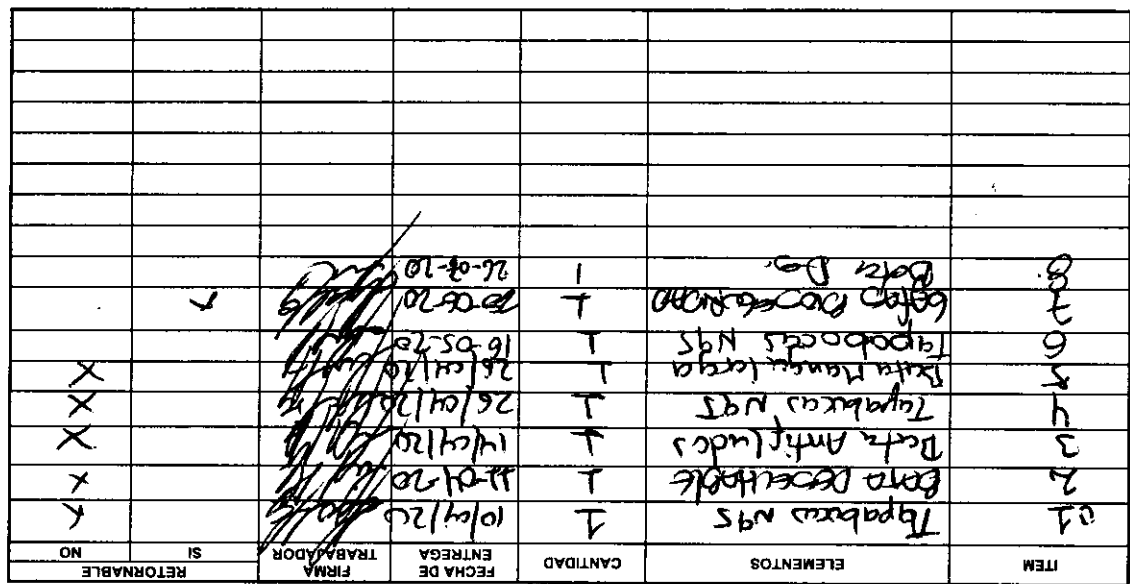 ITEM ELEMENTOS CANTIDAD FECHA DE ENTREGA FIRMA TRABAJADOR RETORNABLE SI NO
01 Tapabocas N95 1 10/04/20 X
2 BATA DESECHABLE 1 11-04-20 X
3 Bata Antifluidos 1 14/04/20 X
4 Tapabocas N95 1 26/04/20 X
5 Bata Manga larga 1 26/04/20 X
6 Tapabocas N95 1 16-05-20
7 Gafas BIOSEGURIDAD 1 20-06-20 X
8. Bata Des. 1 26-07-20